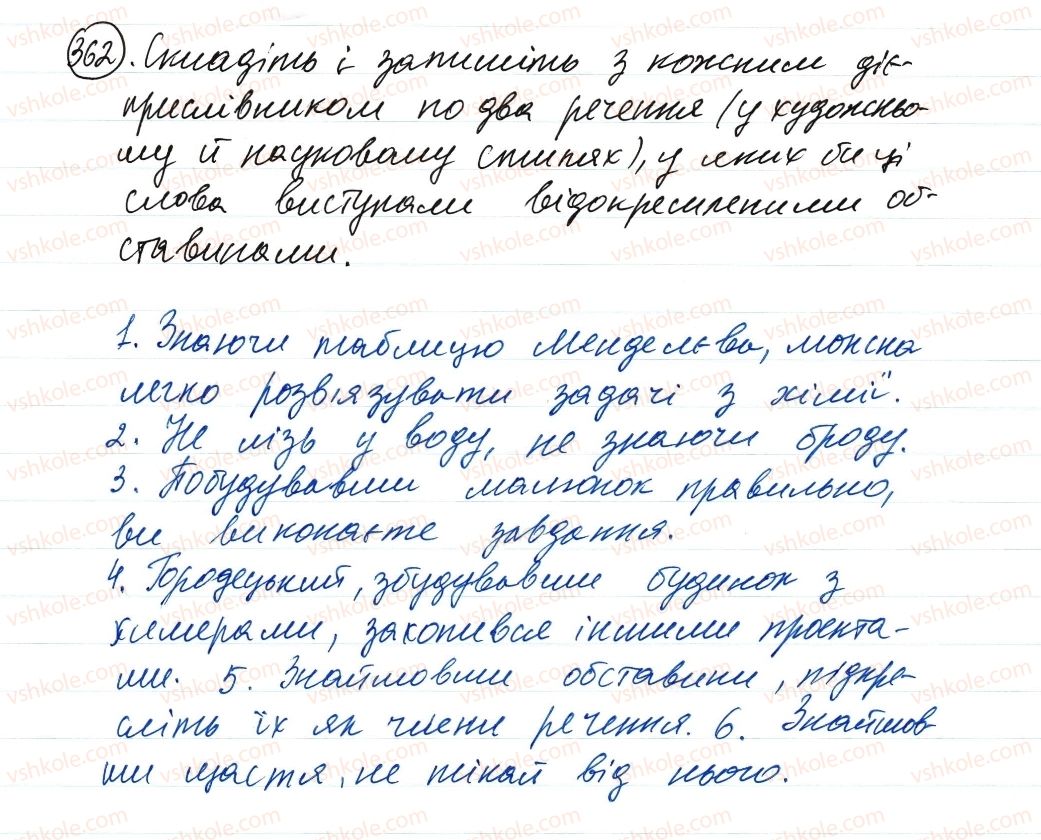 362. Складіть і запишіть з кожним діє-
прислівником по два речення (у художньо-
му й науковому стилях), у яких би ці
слова виступали відокремленими об-
ставинами.
1. Знаючи таблицю Менделєєва, можна
легко розв'язувати задачі з хімії.
2. Не лізь у воду, не знаючи броду.
3. Побудувавши малюнок правильно,
ви виконаєте завдання.
4. Городецький, збудувавши будинок з
химерами, захопився іншими проекта-
ми. 5. Знайшовши обставини, підкре-
сліть їх як члени речення. 6. Знайшов
ши щастя, не тікай від нього.